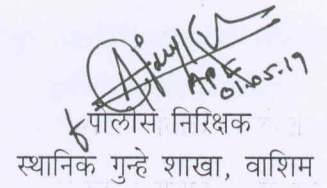 01.05.19
पोलीस निरिक्षक
स्थानिक गुन्हे शाखा, वाशिम